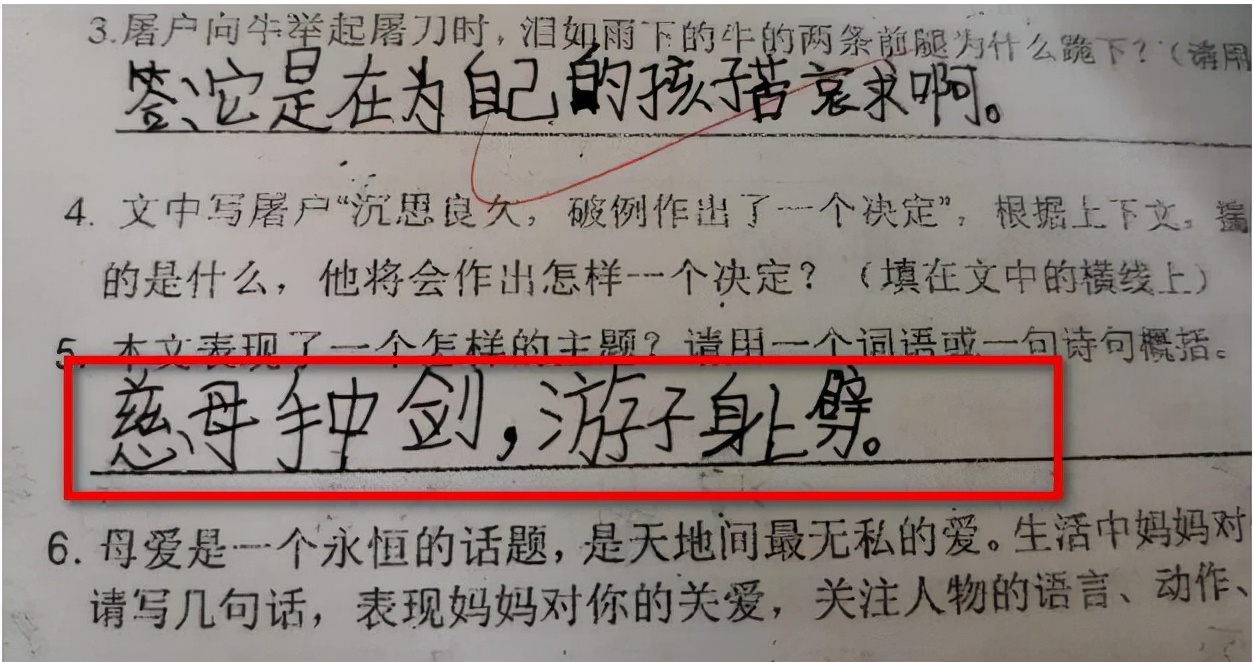 3.屠户向牛举起屠刀时,泪如雨下的牛的两条前腿为什么跪下?(请用
签:它是在为自己的孩子苦哀求啊。
4. 文中写屠户“沉思良久,破例作出了一个决定”,根据上下文,揣
的是什么,他将会作出怎样一个决定?(填在文中的横线上)
5. 本文表现了一个怎样的主题?请用一个词语或一句诗句概括。
慈母手中剑,游子身上劈。
6. 母爱是一个永恒的话题,是天地间最无私的爱。生活中妈妈对
请写几句话,表现妈妈对你的关爱,关注人物的语言、动作、